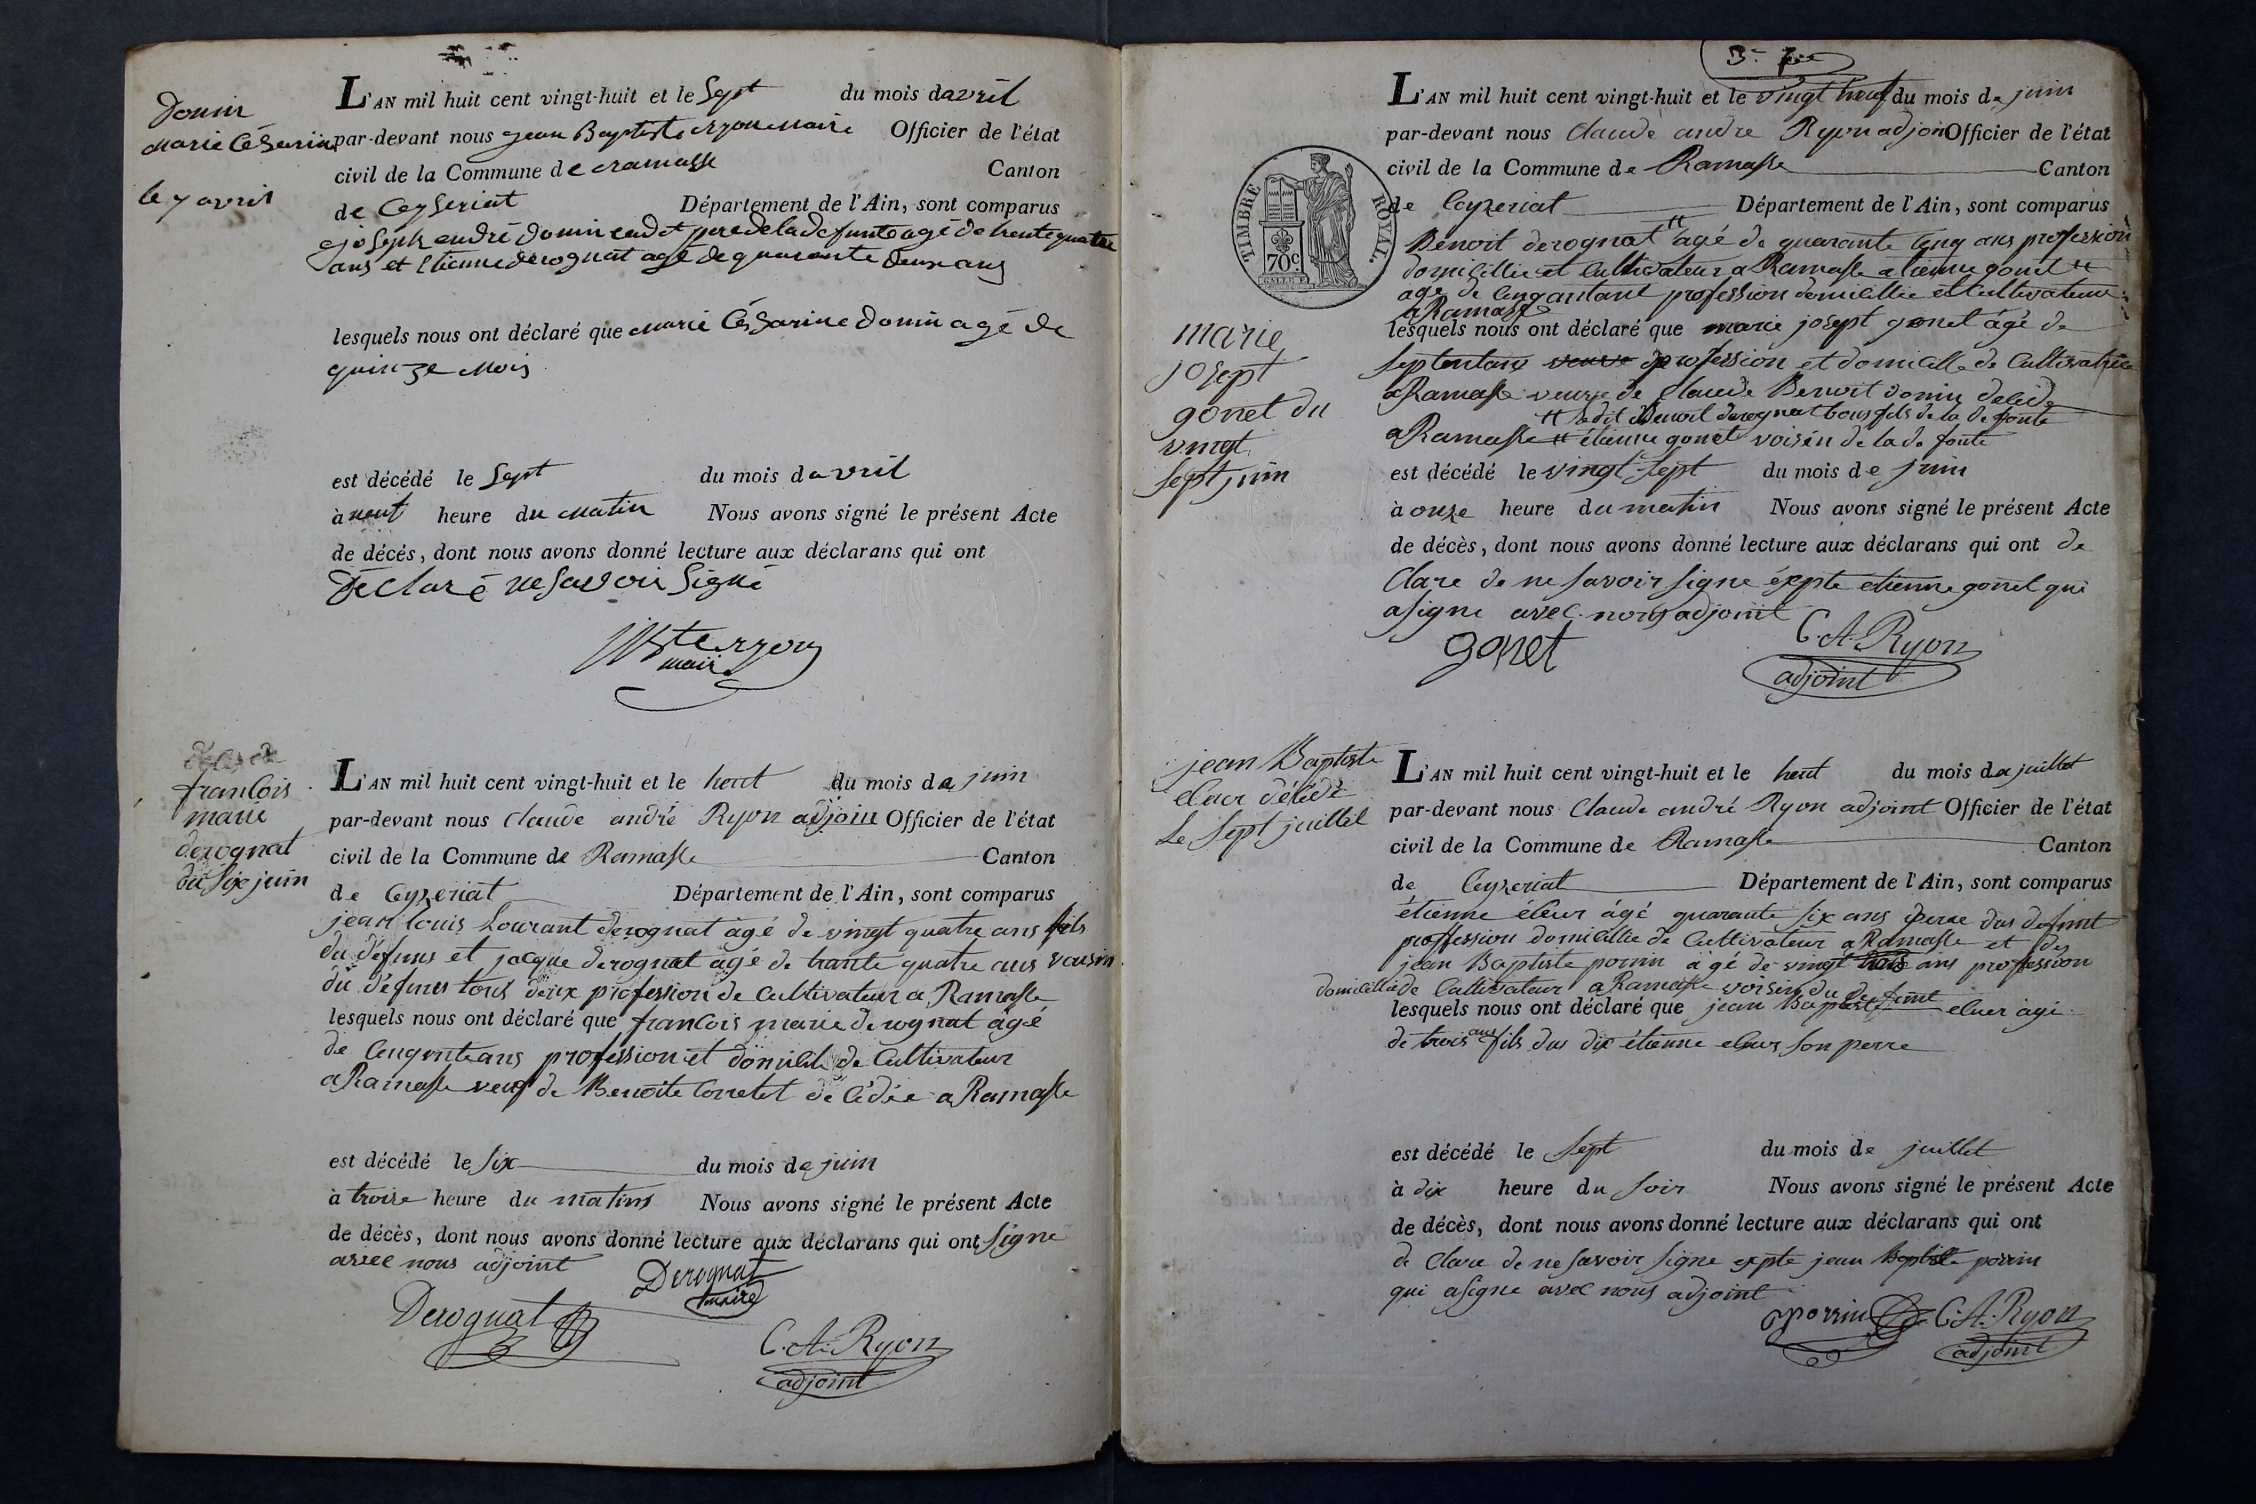 Domin
marie Césarine
le 7 avril
L'AN mil huit cent vingt-huit et le Sept du mois davril
par-devant nous jean Baptiste ryon maire Officier de l'état
civil de la Commune de ramasse Canton
de Ceyseriat Département de l'Ain, sont comparus
joseph andré Domin cadet pere de la defunte agé de trente quatre
ans et Etienne derognat agé de quarante deux ans
lesquels nous ont déclaré que marie Césarine Domin agé de
quinze mois
est décédé le Sept du mois davril
à neuf heure du matin Nous avons signé le présent Acte
de décés, dont nous avons donné lecture aux déclarans qui ont
Déclaré ne Savoir Signé
ryon
maire
décès de
francois
marie
derognat
du six juin
L'AN mil huit cent vingt-huit et le heut du mois de juin
par-devant nous Claude andré Ryon adjoin Officier de l'état
civil de la Commune de Ramasse Canton
de Ceyzeriat Département de l'Ain, sont comparus
jean louis Lourant derognat agé de vingt quatre ans fils
du défuns et jacque derognat agé de trante quatre ans voisin
du défuns tous deux profession de Cultivateur a Ramasse
lesquels nous ont déclaré que francois marie derognat agé
de Cenquente ans profession et domicile de Cultivateur
a Ramasse veuf de Benoite Corretet décédée a Ramasse
est décédé le six du mois de juin
à troise heure du matins Nous avons signé le présent Acte
de décès, dont nous avons donné lecture aux déclarans qui ont signe
avec nous adjoint
Derognat
maire
Derognat
C. A. Ryon
adjoint
3e fle
L'AN mil huit cent vingt-huit et le vingt heut du mois de juin
par-devant nous Claude andre Ryon adjoin Officier de l'état
civil de la Commune de Ramasse Canton
de Ceyzeriat Département de l'Ain, sont comparus
TIMBRE ROYAL.
70c.
Benoit derognat agé de quarante Cenq ans profession
domicillie et Cultivateur a Ramasse etienne gonet
age de Cenqantant profession domicillie et Cultivateur
a Ramasse
marie
josept
gonet du
vingt
sept juin
lesquels nous ont déclaré que marie josept gonet âgé de
septentans veuve profession et domicille de Cultivatrice
a Ramasse veuve de Claude Benoit domin décédé
ledit Benoit derognat bousfils de la defonte
a Ramasse etienne gonet voisin de la defonte
est décédé le vingt-sept du mois de juin
à onze heure du matin Nous avons signé le présent Acte
de décès, dont nous avons donné lecture aux déclarans qui ont de
Clare de ne savoir signe éxpte etienne gonet qui
a signe avec nous adjoint
gonet
C. A. Ryon
adjoint
jean Baptiste
eluer décédé
Le sept juillet
L'AN mil huit cent vingt-huit et le heut du mois de juillet
par-devant nous Claude andré Ryon adjoint Officier de l'état
civil de la Commune de Ramasse Canton
de Ceyzeriat Département de l'Ain, sont comparus
étienne éleur âgé quarante six ans perre dus defunt
proffession domicillie de Cultivateur a Ramasse et des
jean Baptiste porrin agé de vingt trois ans profession
domicillié de Cultivateur a Ramasse voisin du defunt
lesquels nous ont déclaré que jean Baptiste eluer agé
de trois ans fils dus dix étienne eleur son perre
est décédé le sept du mois de juillet
à dix heure du soir Nous avons signé le présent Acte
de décès, dont nous avons donné lecture aux déclarans qui ont
de Clare de ne savoir signe expte jean Baptiste porrin
qui a signe avec nous adjoint
porrin C. A. Ryon
adjoint